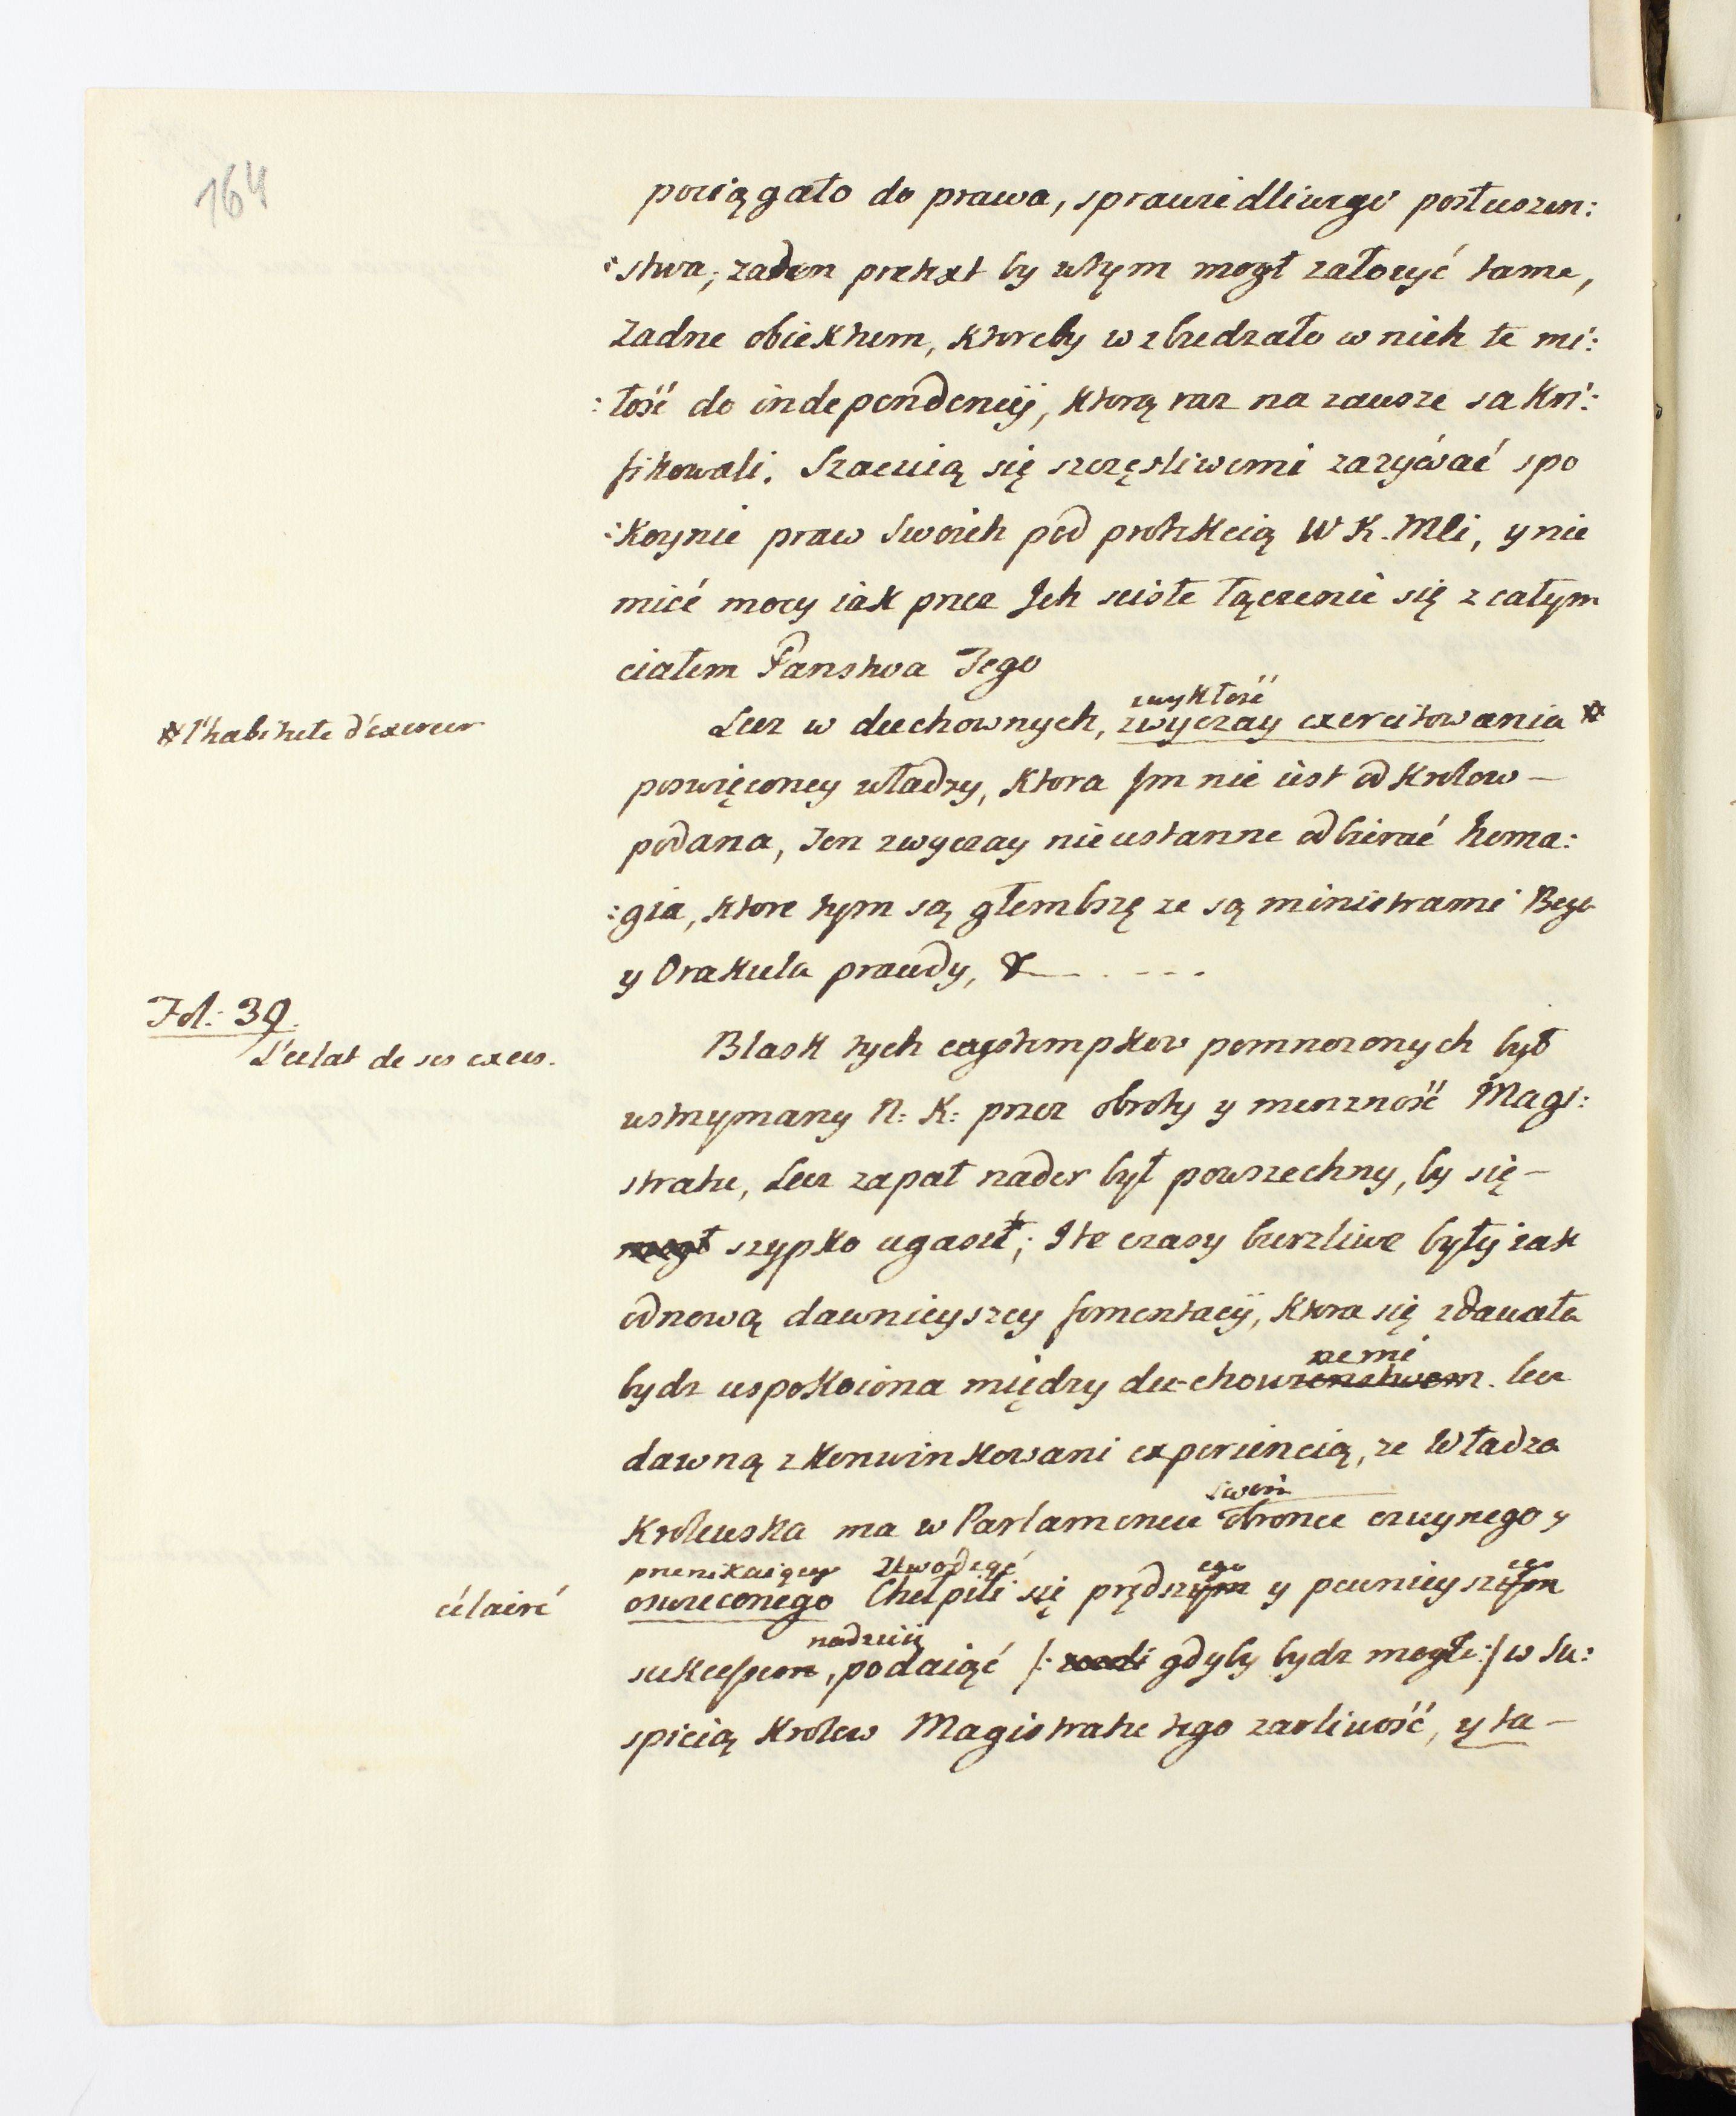 164
pociągało do prawa, sprawiedliwego posłuszen:
:stwa; zaden pretext by wtym mogł załozyć tame,
zadne obiektum, ktoreby wzbudzało w nich te mi:
:łość do independencij, ktorą raz na zawsze sakri:
fikowali. Szacuią się szczęsliwemi zazyẃać spo
:koynie praw Swoich pod protekcią W K. Mći, y nie
mieć mocy iak przez Ich scisłe łączenie się z całym
ciałem Panstwa Jego
zwykłość
Lecz w duchownych, zwyczay exercitowania *
* l'habitude d'exercer
poswięconey władzy, ktora Im nie iest od Krolow –
podana, Ten zwyczay nieustanne odbierać homa:
:gia, ktore tym są głembszę ze są ministrami Bogo
y Orakula prawdy, & – . - - -
Fol: 39.
L'éclat de ses exces.
Blask tych czystempkow pomnozonych był
ustrzymany N: K: przez obroty y menzność Magi:
stratu, Lecz zapał nader był powszechny, by się –
mogł szypko ugasił; Ite czasy burzliwe były iak
odnową dawnieyszey fomentacij, ktora się zdawała
nemi
bydz uspokoiona między duchowienstwem. lecz
dawną zkonwinkowani experiencią, ze Władza
swoi
Krolewska ma w Parlamencie obronce czuynego y
przenikaiący Uwodząć ego ego
éclairé
oswieconego Chełpili się prędszym y pewnieyszym
nadzieii
sukcessem, podaiąć /: gdyby bydz mogło :/ w Su:
spicią Krolow Magistratu tego zarliwość, y ta –